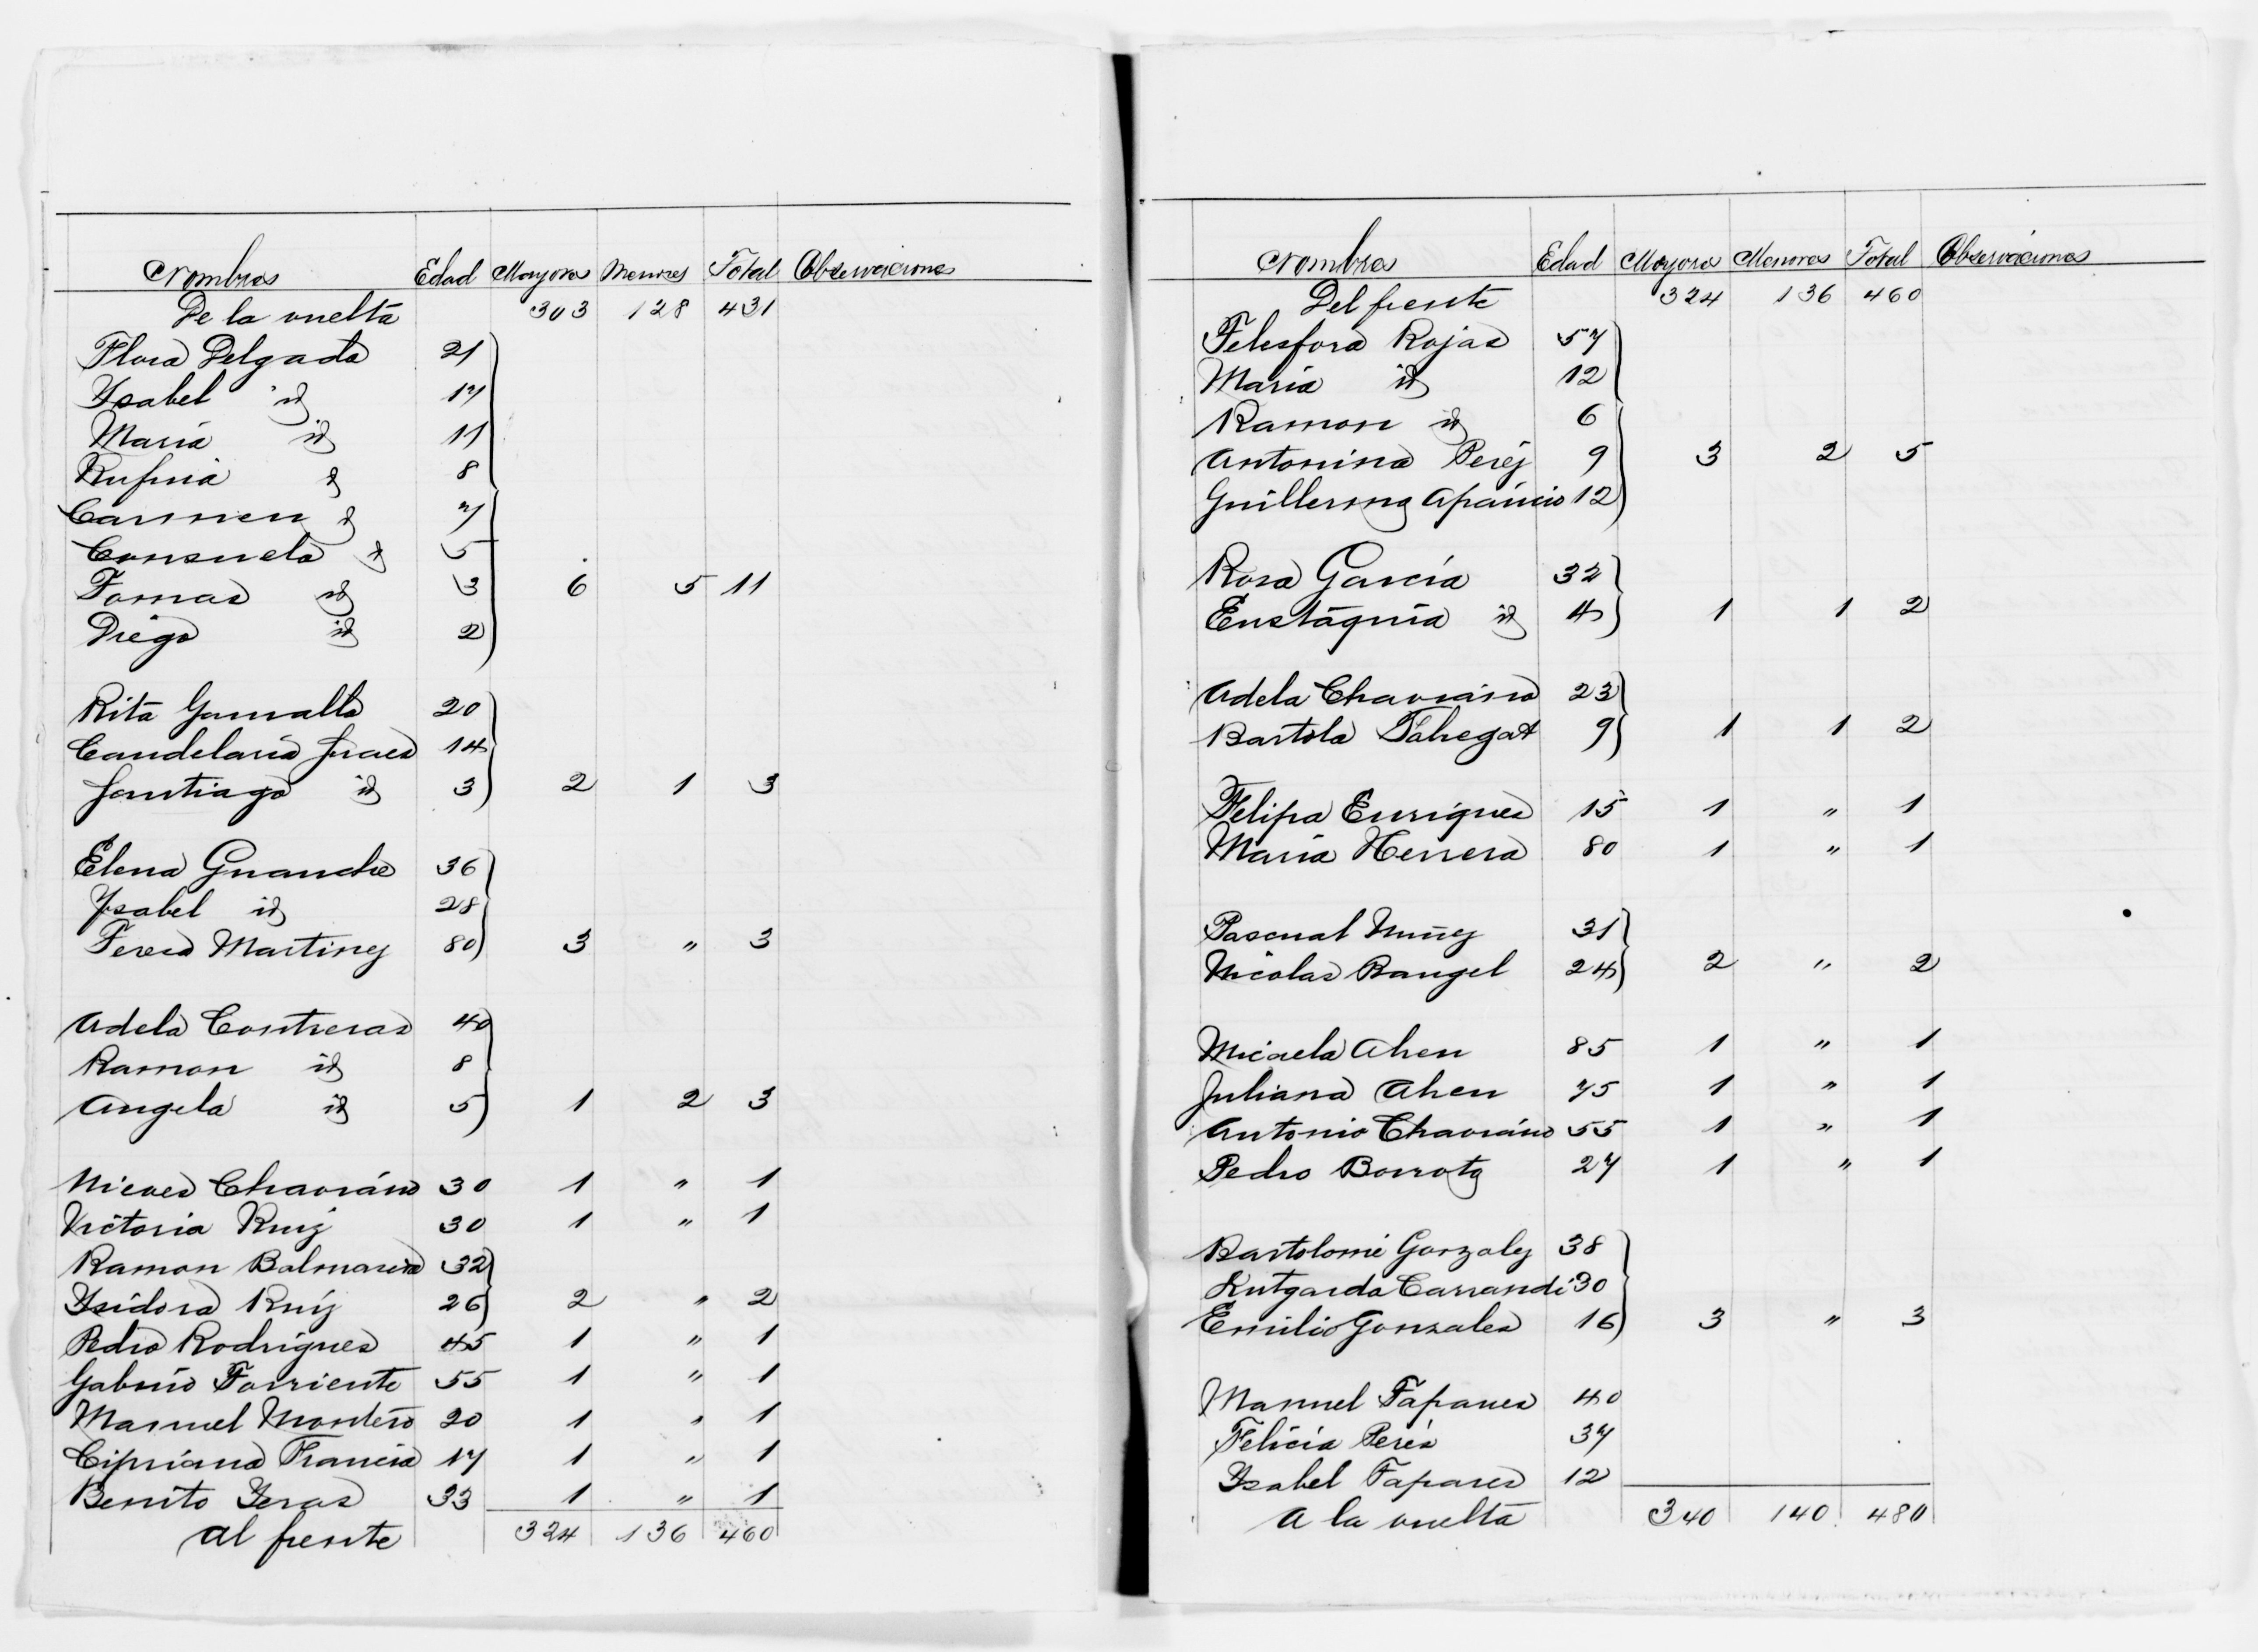 Nombres Edad Mayores Menores Total Observaciones
De la vuelta 303 128 431
Flora Delgado 21
Ysabel id 17
Maria id 11
Rufina id 8
Carmen id 7
Consuelo id 5
Tomas id 3 6 5 11
Diego id 2
Rita 20
Candelaria 14
Santiago id 3 2 1 3
Elena Guanche 36
Ysabel id 28
Teresa Martinez 80 3 " 3
Adela Contreras 40
Ramon id 8
Angela id 5 1 2 3
Nieves Chaviano 30 1 " 1
Victoria Ruiz 30 1 " 1
Ramon Balmaseda 32
Ysidora Ruiz 26 2 " 2
Pedro Rodrigues 45 1 " 1
Gabino Torriente 55 1 " 1
Manuel Montero 20 1 " 1
Cipriana Francia 17 1 " 1
Benito Yeras 33 1 " 1
al frente 324 136 460
Nombres Edad Mayores Menores Total Observaciones
Del frente 324 136 460
Telesfora Rojas 57
Maria id 12
Ramon id 6
Antonina Perez 9 3 2 5
Guillermo Aparicio 12
Rosa Garcia 32
Eustaquia id 4 1 1 2
Adela Chaviano 23
Bartola 9 1 1 2
Felipa Enriques 15 1 " 1
Maria Herrera 80 1 " 1
Pascual Nuñez 31
Nicolas Rangel 24 2 " 2
Micaela Ahen 85 1 " 1
Juliana Ahen 75 1 " 1
Antonio Chaviano 55 1 " 1
Pedro Borroto 27 1 " 1
Bartolomé Gonzalez 38
Lutgarda Carrandi 30
Emilio Gonzales 16 3 " 3
Manuel Tapanes 40
Felicia Peres 37
Ysabel Tapanes 12
A la vuelta 340 140 480